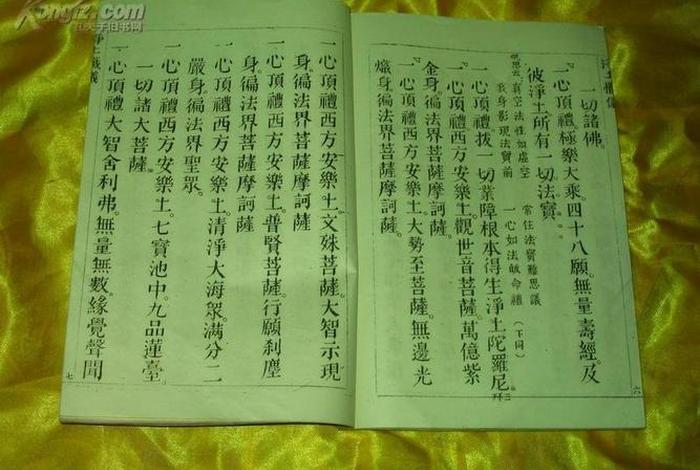 一切諸佛。
一心頂禮。極樂大乘。四十八願。無量壽經。及
彼淨土所有一切法寶。
思云。真空法性如虛空 常住法寶難思議
我身影現法寶前 一心如法皈命禮(下同)
一心頂禮。拔一切業障根本得生淨土陀羅尼三拜
一心頂禮西方安樂土。觀世音菩薩。萬億紫
金身。徧法界菩薩摩訶薩。
一心頂禮西方安樂土大勢至菩薩。無邊光
熾身徧法界菩薩摩訶薩。
六
一心頂禮西方安樂土。文殊菩薩。大智示現
身徧法界菩薩摩訶薩
一心頂禮西方安樂土。普賢菩薩。行願刹塵
身。徧法界菩薩摩訶薩
一心頂禮西方安樂土。清淨大海衆。滿分二
嚴身。徧法界聖眾。
一心頂禮西方安樂土。七寶池中。九品蓮臺。
一切諸大菩薩。
一心頂禮大智舍利弗。無量無數。緣覺聲聞
七
Kongfz.com
孔夫子旧书网